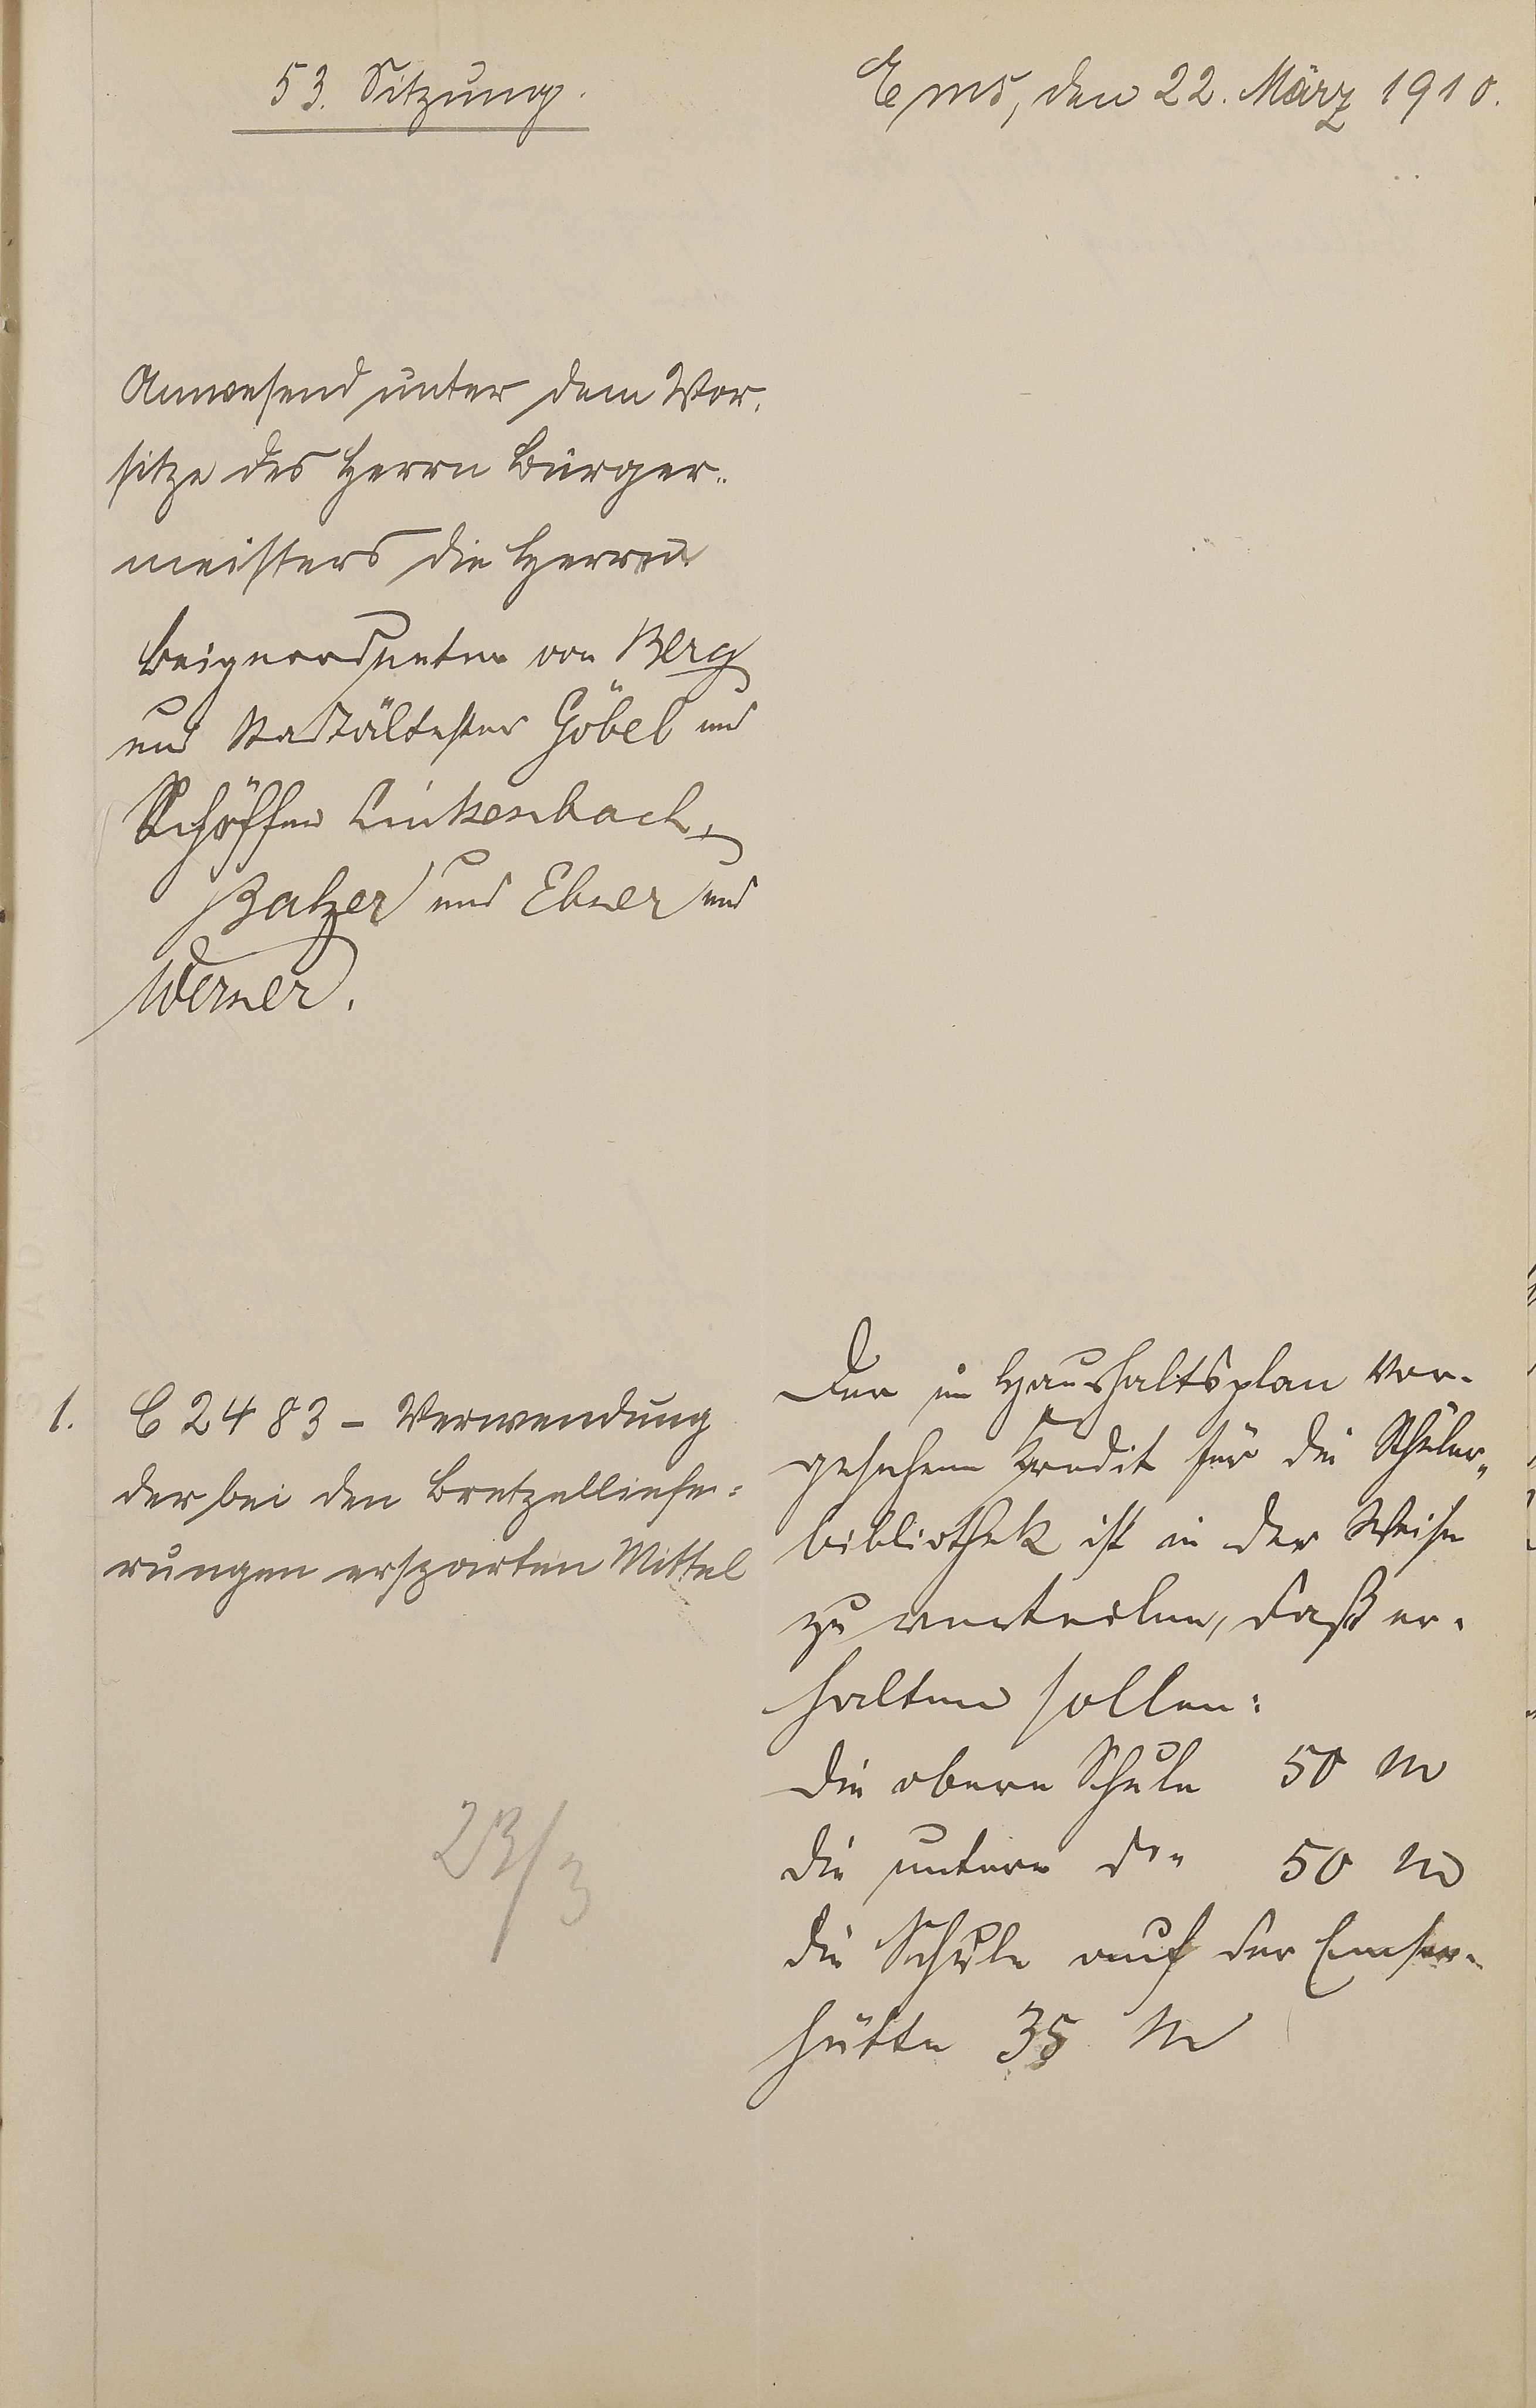 53. Sitzung.
Ems, den 22. März 1910.
Anwesend unter dem Vor-
sitze des Herrn Bürger-
meisters die Herren
Beigeordneter von Berg
und Stadtältester Göbel und
Schöffen Linkenbach,
Balzer und Ebner und
Werner.
1. C 2483 - Verwendung
der bei den Bretzelliefe-
rungen ersparten Mittel
23/3
Der im Haushaltsplan vor-
gesehene Kredit für die Schüler-
bibliothek ist in der Weise
zu verteilen, daß er-
halten sollen:
die obere Schule 50 M
die untere do 50 M
die Schule auf der Emser-
hütte 35 M